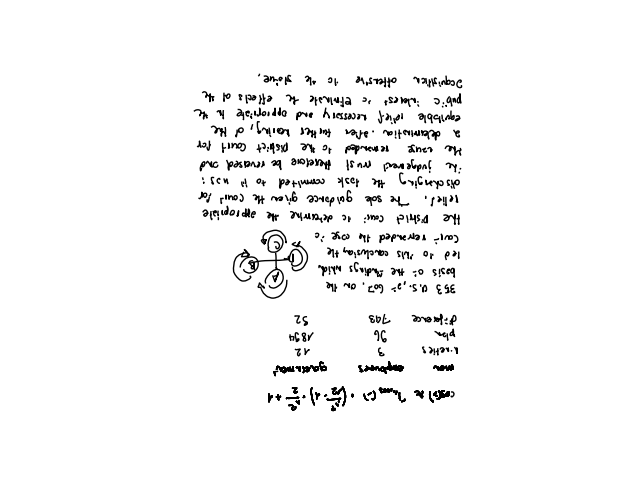 men employers government
kinetics 3 12
plan 96 1894
difference 793 52
353 U.S., at 607, on the
basis of the findings which
led to this conclusion, the
Court remanded the case to
the District Court to determine the appropriate
relief. The sole guidance given the Court for
discharging the task committed to it was :
the judgement must therefore be reversed and
the cause remanded to the District Court for
a determination, after further hearing, of the
equitable relief necessary and appropriate in the
public interest to eliminate the effects of the
acquisition offensive to the statue.
A
B
D
C